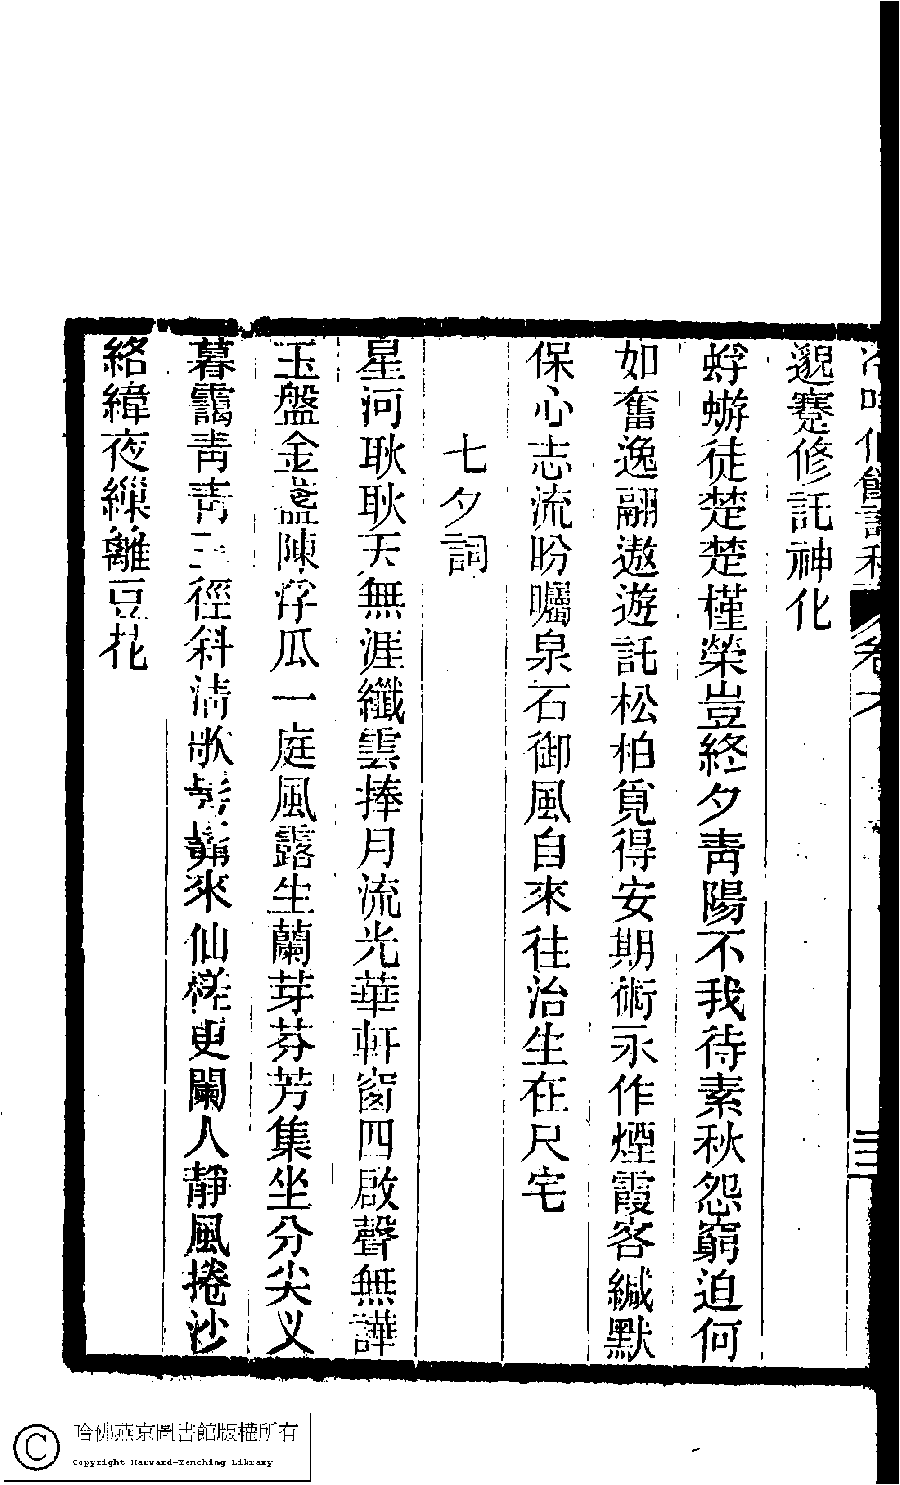 邈蹇修託神化
蜉蝣徒楚楚槿榮豈終夕靑陽不我待素秋怨窮迫何
如奮逸翮遨遊託松柏覓得安期術永作煙霞客緘默
保心志流盼矚泉石御風自來往治生在尺宅
七夕詞
星河耿耿天無涯纖雲捧月流光華軒窗四啟聲無譁
玉盤金盞陳浮瓜一庭風露生蘭芽芬芳集坐分尖叉
暮靄靑靑三徑斜淸歌髣髴來仙槎更闌人靜風捲沙
絡緯夜繅離豆花
卷六
三
哈佛燕京圖書館版權所有
Copyright Harvard-Yenching Library